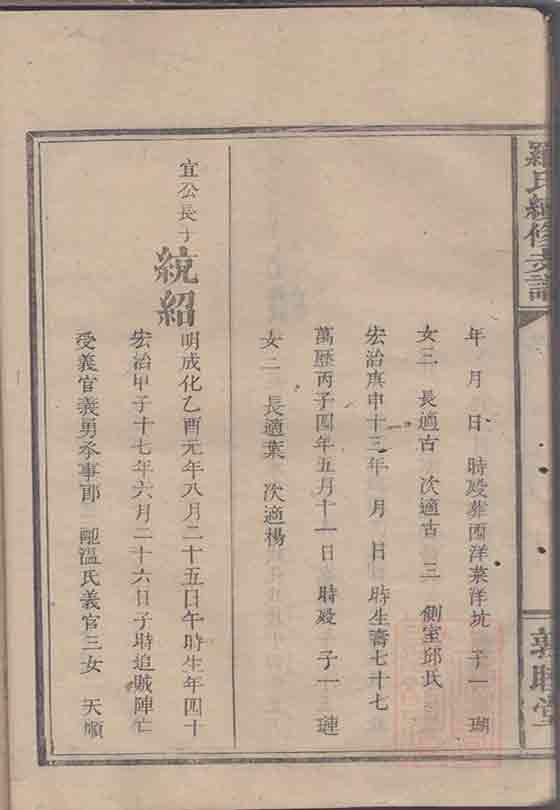 羅氏續修支譜
敦睦堂
年 月 日 時歿葬西洋菜洋坑 子一 瑚
女三 長適古 次適古 三 側室邱氏
宏治庚申十三年 月 日 時生壽七十七
萬歷丙子四年五月十一日 時歿 子一 璉
女二 長適葉 次適楊
宜公長子
統紹
明成化乙酉元年八月二十五日午時生年四十
宏治甲子十七年六月二十六日子時追賊陣亡
受義官義男承事郎 配溫氏義官三女 天順